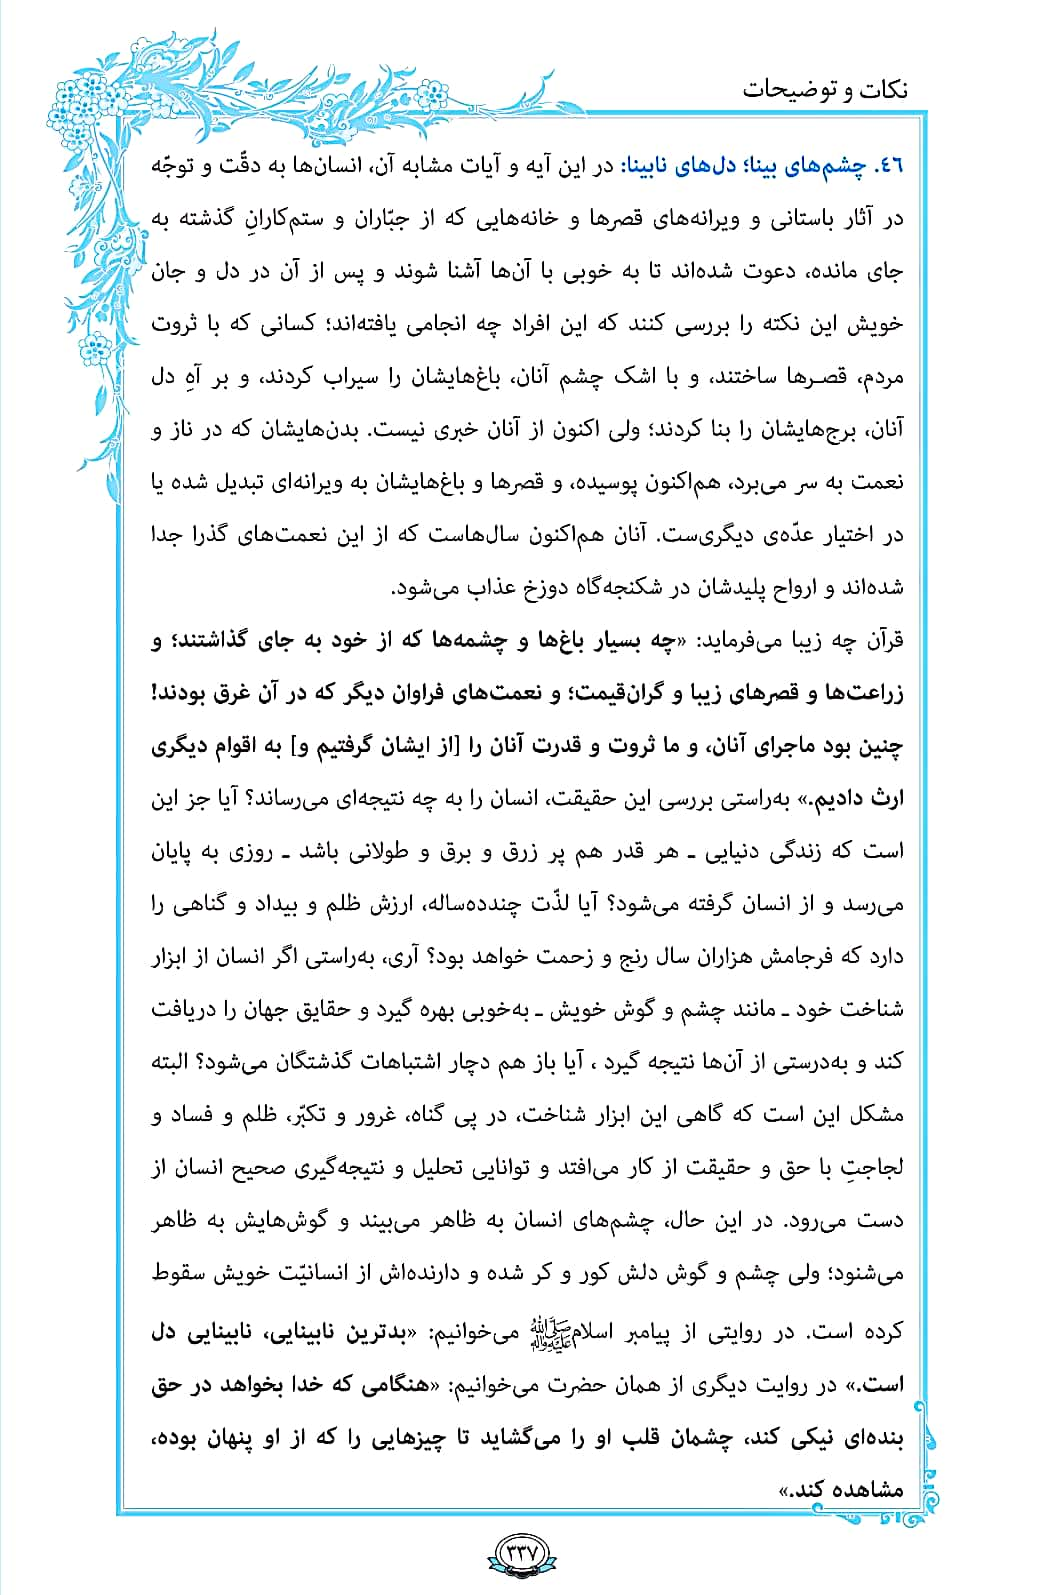 نکات و توضیحات
٤٦. چشم‌های بینا؛ دل‌های نابینا: در این آیه و آیات مشابه آن، انسان‌ها به دقّت و توجّه
در آثار باستانی و ویرانه‌های قصرها و خانه‌هایی که از جبّاران و ستم‌کارانِ گذشته به
جای مانده، دعوت شده‌اند تا به خوبی با آن‌ها آشنا شوند و پس از آن در دل و جان
خویش این نکته را بررسی کنند که این افراد چه انجامی یافته‌اند؛ کسانی که با ثروت
مردم، قصرها ساختند، و با اشک چشم آنان، باغ‌هایشان را سیراب کردند، و بر آهِ دل
آنان، برج‌هایشان را بنا کردند؛ ولی اکنون از آنان خبری نیست. بدن‌هایشان که در ناز و
نعمت به سر می‌برد، هم‌اکنون پوسیده، و قصرها و باغ‌هایشان به ویرانه‌ای تبدیل شده یا
در اختیار عدّه‌ی دیگری‌ست. آنان هم‌اکنون سال‌هاست که از این نعمت‌های گذرا جدا
شده‌اند و ارواح پلیدشان در شکنجه‌گاه دوزخ عذاب می‌شود.
قرآن چه زیبا می‌فرماید: «چه بسیار باغ‌ها و چشمه‌ها که از خود به جای گذاشتند؛ و
زراعت‌ها و قصرهای زیبا و گران‌قیمت؛ و نعمت‌های فراوان دیگر که در آن غرق بودند!
چنین بود ماجرای آنان، و ما ثروت و قدرت آنان را [از ایشان گرفتیم و] به اقوام دیگری
ارث دادیم.» به‌راستی بررسی این حقیقت، انسان را به چه نتیجه‌ای می‌رساند؟ آیا جز این
است که زندگی دنیایی ـ هر قدر هم پر زرق و برق و طولانی باشد ـ روزی به پایان
می‌رسد و از انسان گرفته می‌شود؟ آیا لذّت چندده‌ساله، ارزش ظلم و بیداد و گناهی را
دارد که فرجامش هزاران سال رنج و زحمت خواهد بود؟ آری، به‌راستی اگر انسان از ابزار
شناخت خود ـ مانند چشم و گوش خویش ـ به‌خوبی بهره گیرد و حقایق جهان را دریافت
کند و به‌درستی از آن‌ها نتیجه گیرد ، آیا باز هم دچار اشتباهات گذشتگان می‌شود؟ البته
مشکل این است که گاهی این ابزار شناخت، در پی گناه، غرور و تکبّر، ظلم و فساد و
لجاجتِ با حق و حقیقت از کار می‌افتد و توانایی تحلیل و نتیجه‌گیری صحیح انسان از
دست می‌رود. در این حال، چشم‌های انسان به ظاهر می‌بیند و گوش‌هایش به ظاهر
می‌شنود؛ ولی چشم و گوش دلش کور و کر شده و دارنده‌اش از انسانیّت خویش سقوط
کرده است. در روایتی از پیامبر اسلام صلّی الله علیه وآله می‌خوانیم: «بدترین نابینایی، نابینایی دل
است.» در روایت دیگری از همان حضرت می‌خوانیم: «هنگامی که خدا بخواهد در حق
بنده‌ای نیکی کند، چشمان قلب او را می‌گشاید تا چیزهایی را که از او پنهان بوده،
مشاهده کند.»
۳۳۷